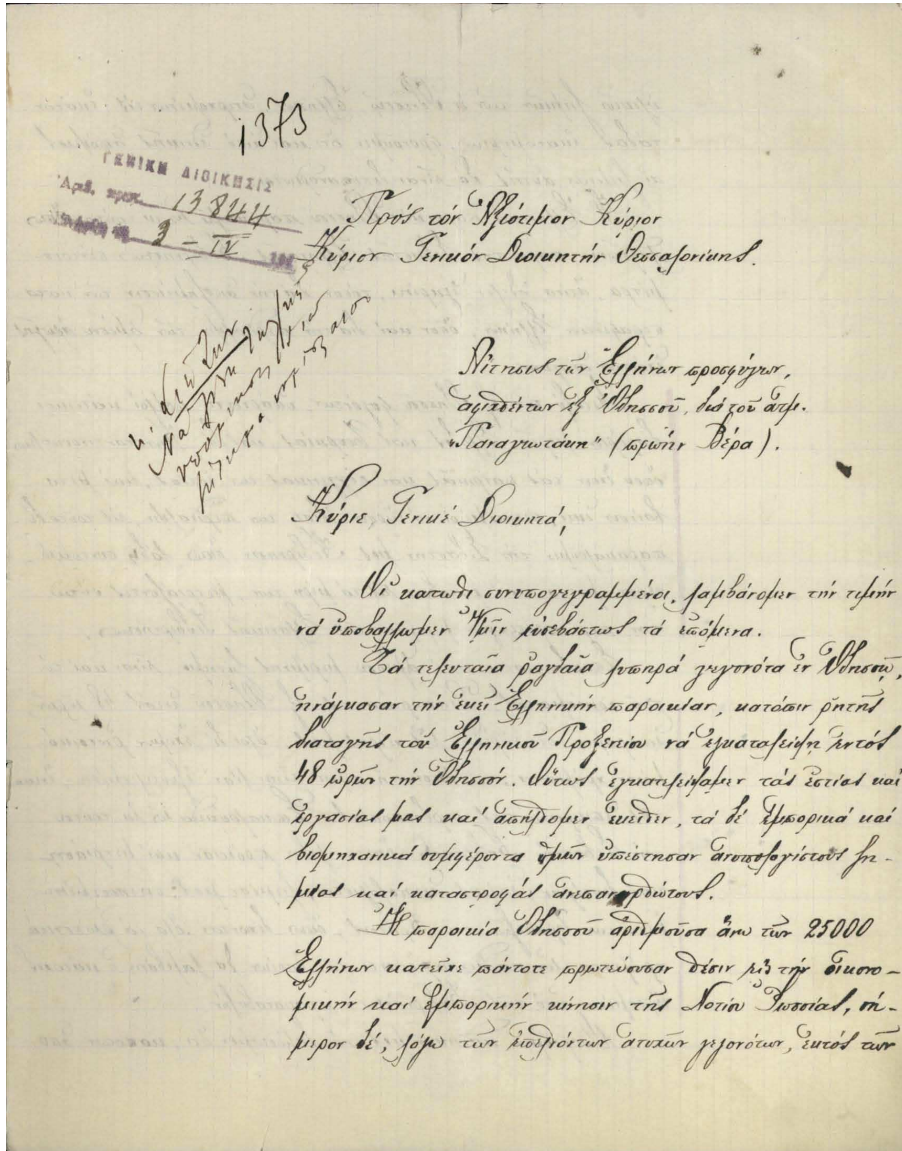 1373
ΓΕΝΙΚΗ ΔΙΟΙΚΗΣΙΣ
Ἀριθ. πρωτ. 13844
3 - IV 191
Πρός τόν Ἀξιότιμον Κύριον
Κύριον Γενικόν Διοικητήν Θεσσαλονίκης.
Αἴτησις τῶν Ἑλλήνων προσφύγων,
αφιχθέντων ἐξ Ὀδησσοῦ, διά τοῦ ἀτμ.
"Παναγιωτάκη" (πρώην Βέρα).
Κύριε Γενικέ Διοικητά,
Οἱ κατωθι συνυπογεγραμμένοι, λαμβάνομεν τήν τιμήν
νά ὑποβάλλωμεν Ὑμῖν εὐσεβάστως τά ἑπόμενα.
Τά τελευταῖα ραγδαῖα λυπηρά γεγονότα ἐν Ὀδησσῷ,
ἠνάγκασαν τήν ἐκεῖ Ἑλληνικήν παροικίαν, κατόπιν ρητῆς
διαταγῆς τοῦ Ἑλληνικοῦ Προξενείου νά ἐγκαταλείψῃ ἐντός
48 ὡρῶν τήν Ὀδησσόν. Οὕτως ἐγκατελείψαμεν τάς ἑστίας καί
ἐργασίας μας καί ἀπήλθομεν ἐκεῖθεν, τά δέ ἐμπορικά καί
βιομηχανικά συμφέροντα ἡμῶν ὑπέστησαν ἀνυπολογίστους ζη-
μίας καί καταστροφάς ἀνεπανορθώτους.
Ἡ παροικία Ὀδησσοῦ ἀριθμοῦσα ἄνω τῶν 25000
Ἑλλήνων κατεῖχε πάντοτε πρωτεύουσαν θέσιν εἰς τήν οἰκονο-
μικήν καί ἐμπορικήν κίνησιν τῆς Νοτίου Ρωσσίας, σή-
μερον δέ, λόγω τῶν ἐπελθόντων ἀτυχῶν γεγονότων, ἐκτός τῶν